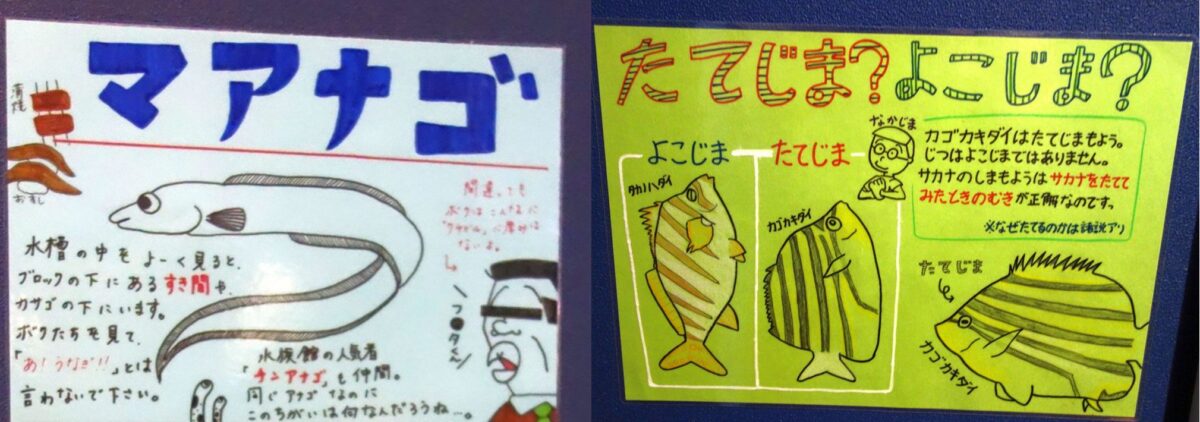 マアナゴ
蒲焼
おすし
水槽の中をよーく見ると、
ブロックの下にあるすき間や、
カサゴの下にいます。
ボクたちを見て、
「あ!うなぎ!!」とは
言わないで下さい。
間違っても
ボクはこんなに
ないよ。
水族館の人気者
「チンアナゴ」も仲間。
同じアナゴなのに
このちがいは何なんだろうね…。
フ●タくん
たてじま?よこじま?
よこじま
たてじま
なかじま
タカノハダイ
カゴカキダイ
カゴカキダイはたてじまもよう。
じつはよこじまではありません。
サカナのしまもようはサカナをたてて
みたときのむきが正解なのです。
※なぜたてるのかは諸説アリ
たてじま
カゴカキダイ